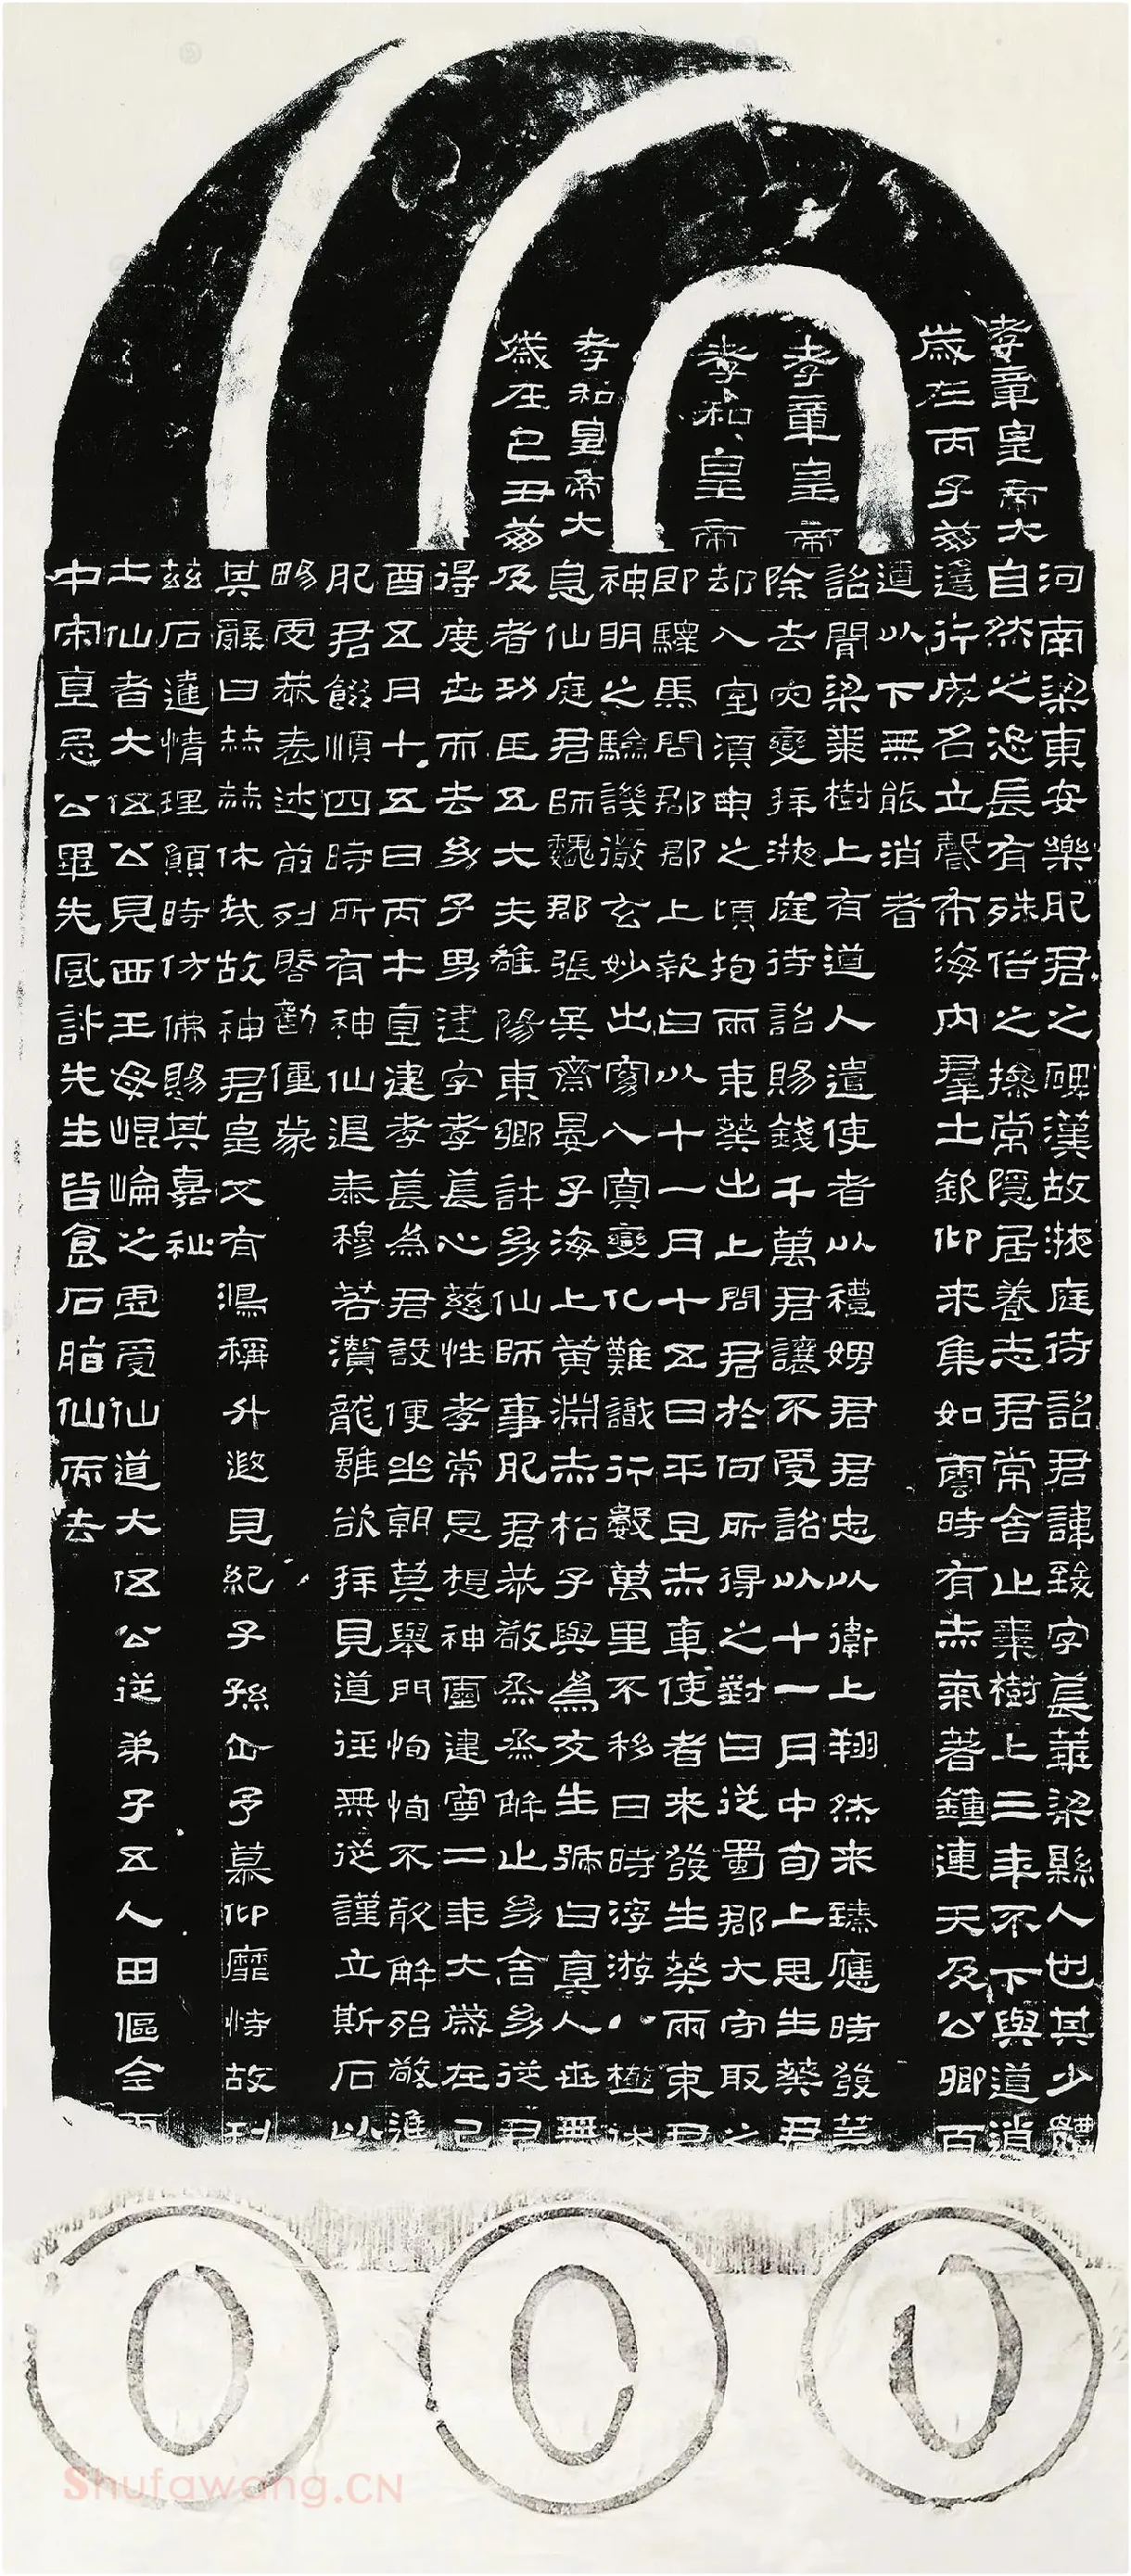 孝章皇帝
孝和皇帝
孝章皇帝大
歲在丙子崩
孝和皇帝大
歲在己丑崩
河南梁東安樂肥君之碑漢故掖庭待詔君諱致字萇華梁縣人也其少體
自然之恣長有殊俗之操常隱居養志君常舍止棗樹上三年不下與道消
遙行成名立聲布海內羣士欽仰來集如雲時有赤氣著鐘連天及公卿百
遼以下無能消者
詔聞梁棗樹上有道人遣使者以禮娉君君忠以衛上翔然來臻應時發筭
除去灾變拜掖庭待詔賜錢千萬君讓不受詔以十一月中旬上思生葵君
却入室須臾之頃抱兩束葵出上問君於何所得之對曰從蜀郡大守取之
即驛馬問郡郡上報曰以十一月十五日平旦赤車使者來發生葵兩束君
神明之驗譏徹玄妙出窈入冥變化難識行數萬里不移日時浮游八極休
息仙庭君師魏郡張吳齋晏子海上黃淵赤松子與爲友生號曰真人世無
及者功臣五大夫雒陽東鄉許幼仙師事肥君恭敬烝烝解止幼舍幼從君
得度世而去幼子男建字孝萇心慈性孝常思想神靈建寧二年大歲在己
酉五月十五日丙午直建孝萇為君設便坐朝莫舉門恂恂不敢解殆敬進
肥君餟順四時所有神仙退泰穆若潛龍雖欲拜見道徑無從謹立斯石以
暢虔恭表述前列啓勸僮蒙
其辭曰赫赫休哉故神君皇又有鴻稱升遐見紀子孫企予慕仰靡恃故刊
茲石達情理願時仿佛賜其嘉祉
土仙者大伍公見西王母崐崙之虛受仙道大伍公從弟子五人田傴全雨
中宋直忌公畢先風許先生皆食石脂仙而去
Shufawang.CN